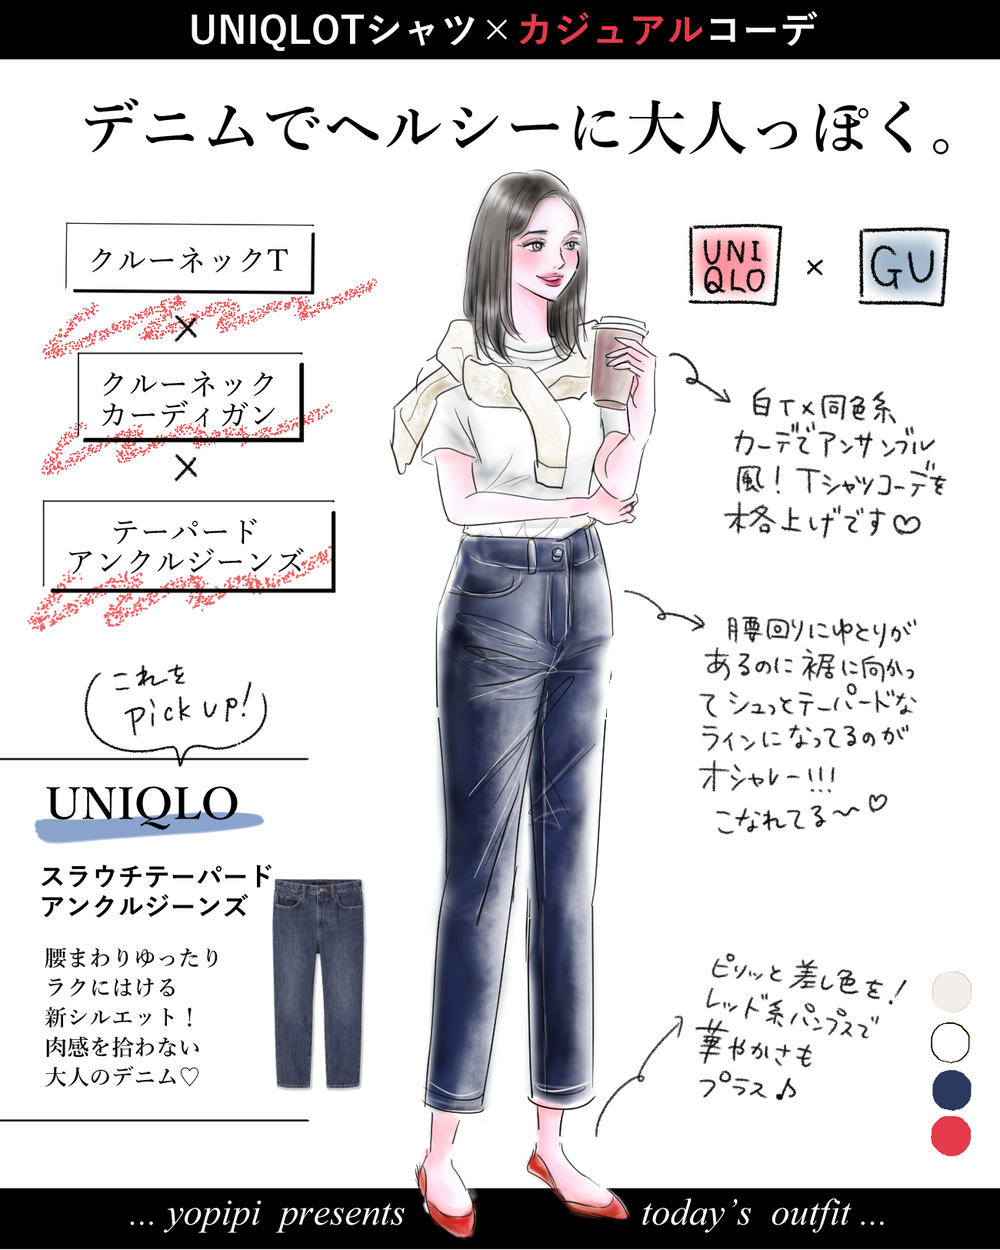 UNIQLOTシャツ×カジュアルコーデ
デニムでヘルシーに大人っぽく。
クルーネックT
×
クルーネック
カーディガン
×
テーパード
アンクルジーンズ
UNI
QLO
×
GU
白T×同色系
カーデでアンサンブル
風！Tシャツコーデを
格上げです♡
腰回りにゆとりが
あるのに裾に向かっ
てシュッとテーパードな
ラインになってるのが
オシャレー!!!
こなれてる〜♡
これを
pick up!
UNIQLO
スラウチテーパード
アンクルジーンズ
腰まわりゆったり
ラクにはける
新シルエット！
肉感を拾わない
大人のデニム♡
ピリッと差し色を！
レッド系パンプスで
華やかさも
プラス♪
... yopipi presents
today's outfit ...